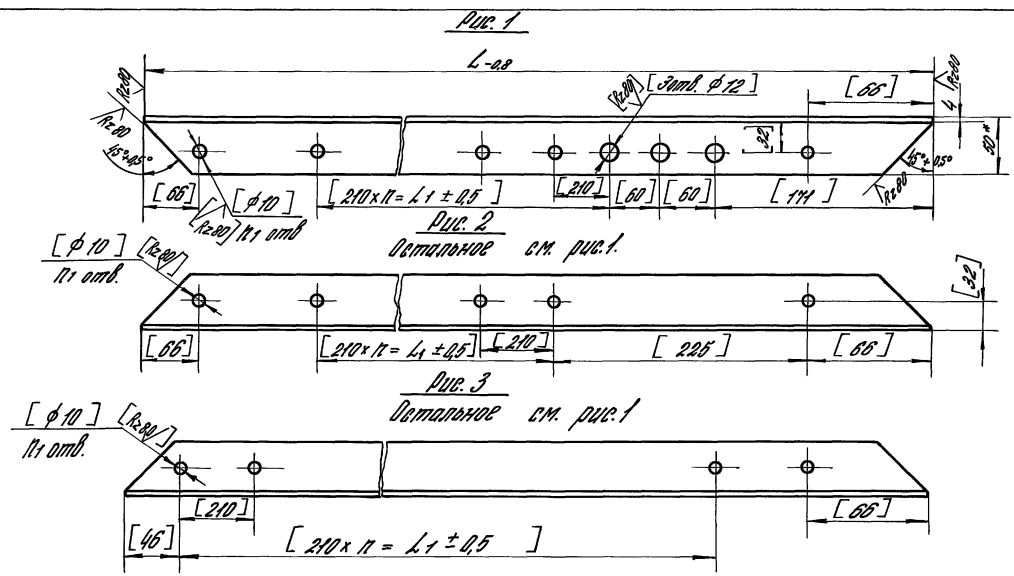 Рис. 1
L-0,8
Rz80
Rz80
45°+0,5°
[Rz80]
[3отв. ф12]
[66]
4
Rz80
[32]
50*
45°+0,5°
Rz80
[66]
[Rz80]
[ф10]
n1 отв
[210×n = L1 ±0,5]
[210]
[60]
[60]
[171]
Рис. 2
Остальное см. рис.1.
[ф10]
n1 отв.
[Rz80]
[32]
[66]
[210×n = L1 ±0,5]
[210]
[225]
[66]
Рис. 3
Остальное см. рис.1
[ф10]
n1 отв.
[Rz80]
[210]
[66]
[46]
[210×n = L1 ±0,5]